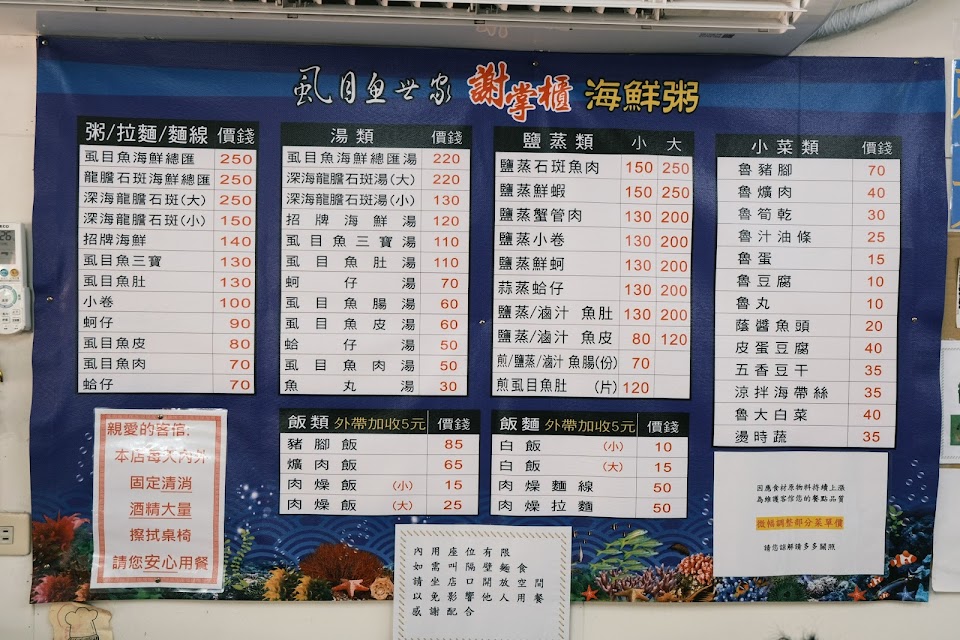 虱目魚世家 謝掌櫃 海鮮粥
粥/拉麵/麵線 價錢
虱目魚海鮮總匯 250
龍膽石斑海鮮總匯 250
深海龍膽石斑(大) 250
深海龍膽石斑(小) 150
招牌海鮮 140
虱目魚三寶 130
虱目魚肚 130
小卷 100
蚵仔 90
虱目魚皮 80
虱目魚肉 70
蛤仔 70
湯類 價錢
虱目魚海鮮總匯湯 220
深海龍膽石斑湯(大) 220
深海龍膽石斑湯(小) 130
招牌海鮮湯 120
虱目魚三寶湯 110
虱目魚肚湯 110
蚵仔湯 70
虱目魚腸湯 60
虱目魚皮湯 60
蛤仔湯 50
虱目魚肉湯 50
魚丸湯 30
鹽蒸類 小 大
鹽蒸石斑魚肉 150 250
鹽蒸鮮蝦 150 250
鹽蒸蟹管肉 130 200
鹽蒸小卷 130 200
鹽蒸鮮蚵 130 200
蒜蒸蛤仔 130 200
鹽蒸/滷汁 魚肚 130 200
鹽蒸/滷汁 魚皮 80 120
煎/鹽蒸/滷汁 魚腸(份) 70
煎虱目魚肚 (片) 120
小菜類 價錢
魯豬腳 70
魯爌肉 40
魯筍乾 30
魯汁油條 25
魯蛋 15
魯豆腐 10
魯丸 10
蔭醬魚頭 20
皮蛋豆腐 40
五香豆干 35
涼拌海帶絲 35
魯大白菜 40
燙時蔬 35
飯類 外帶加收5元 價錢
豬腳飯 85
爌肉飯 65
肉燥飯 (小) 15
肉燥飯 (大) 25
飯麵 外帶加收5元 價錢
白飯 (小) 10
白飯 (大) 15
肉燥麵線 50
肉燥拉麵 50
親愛的客倌:
本店每天內外
固定清消
酒精大量
擦拭桌椅
請您安心用餐
內用座位有限
如需叫隔壁麵食
請坐店口開放空間
以免影響他人用餐
感謝配合
因應食材原物料持續上漲
為維護客倌您的餐點品質
微幅調整部分菜單價
請您諒解請多多關照